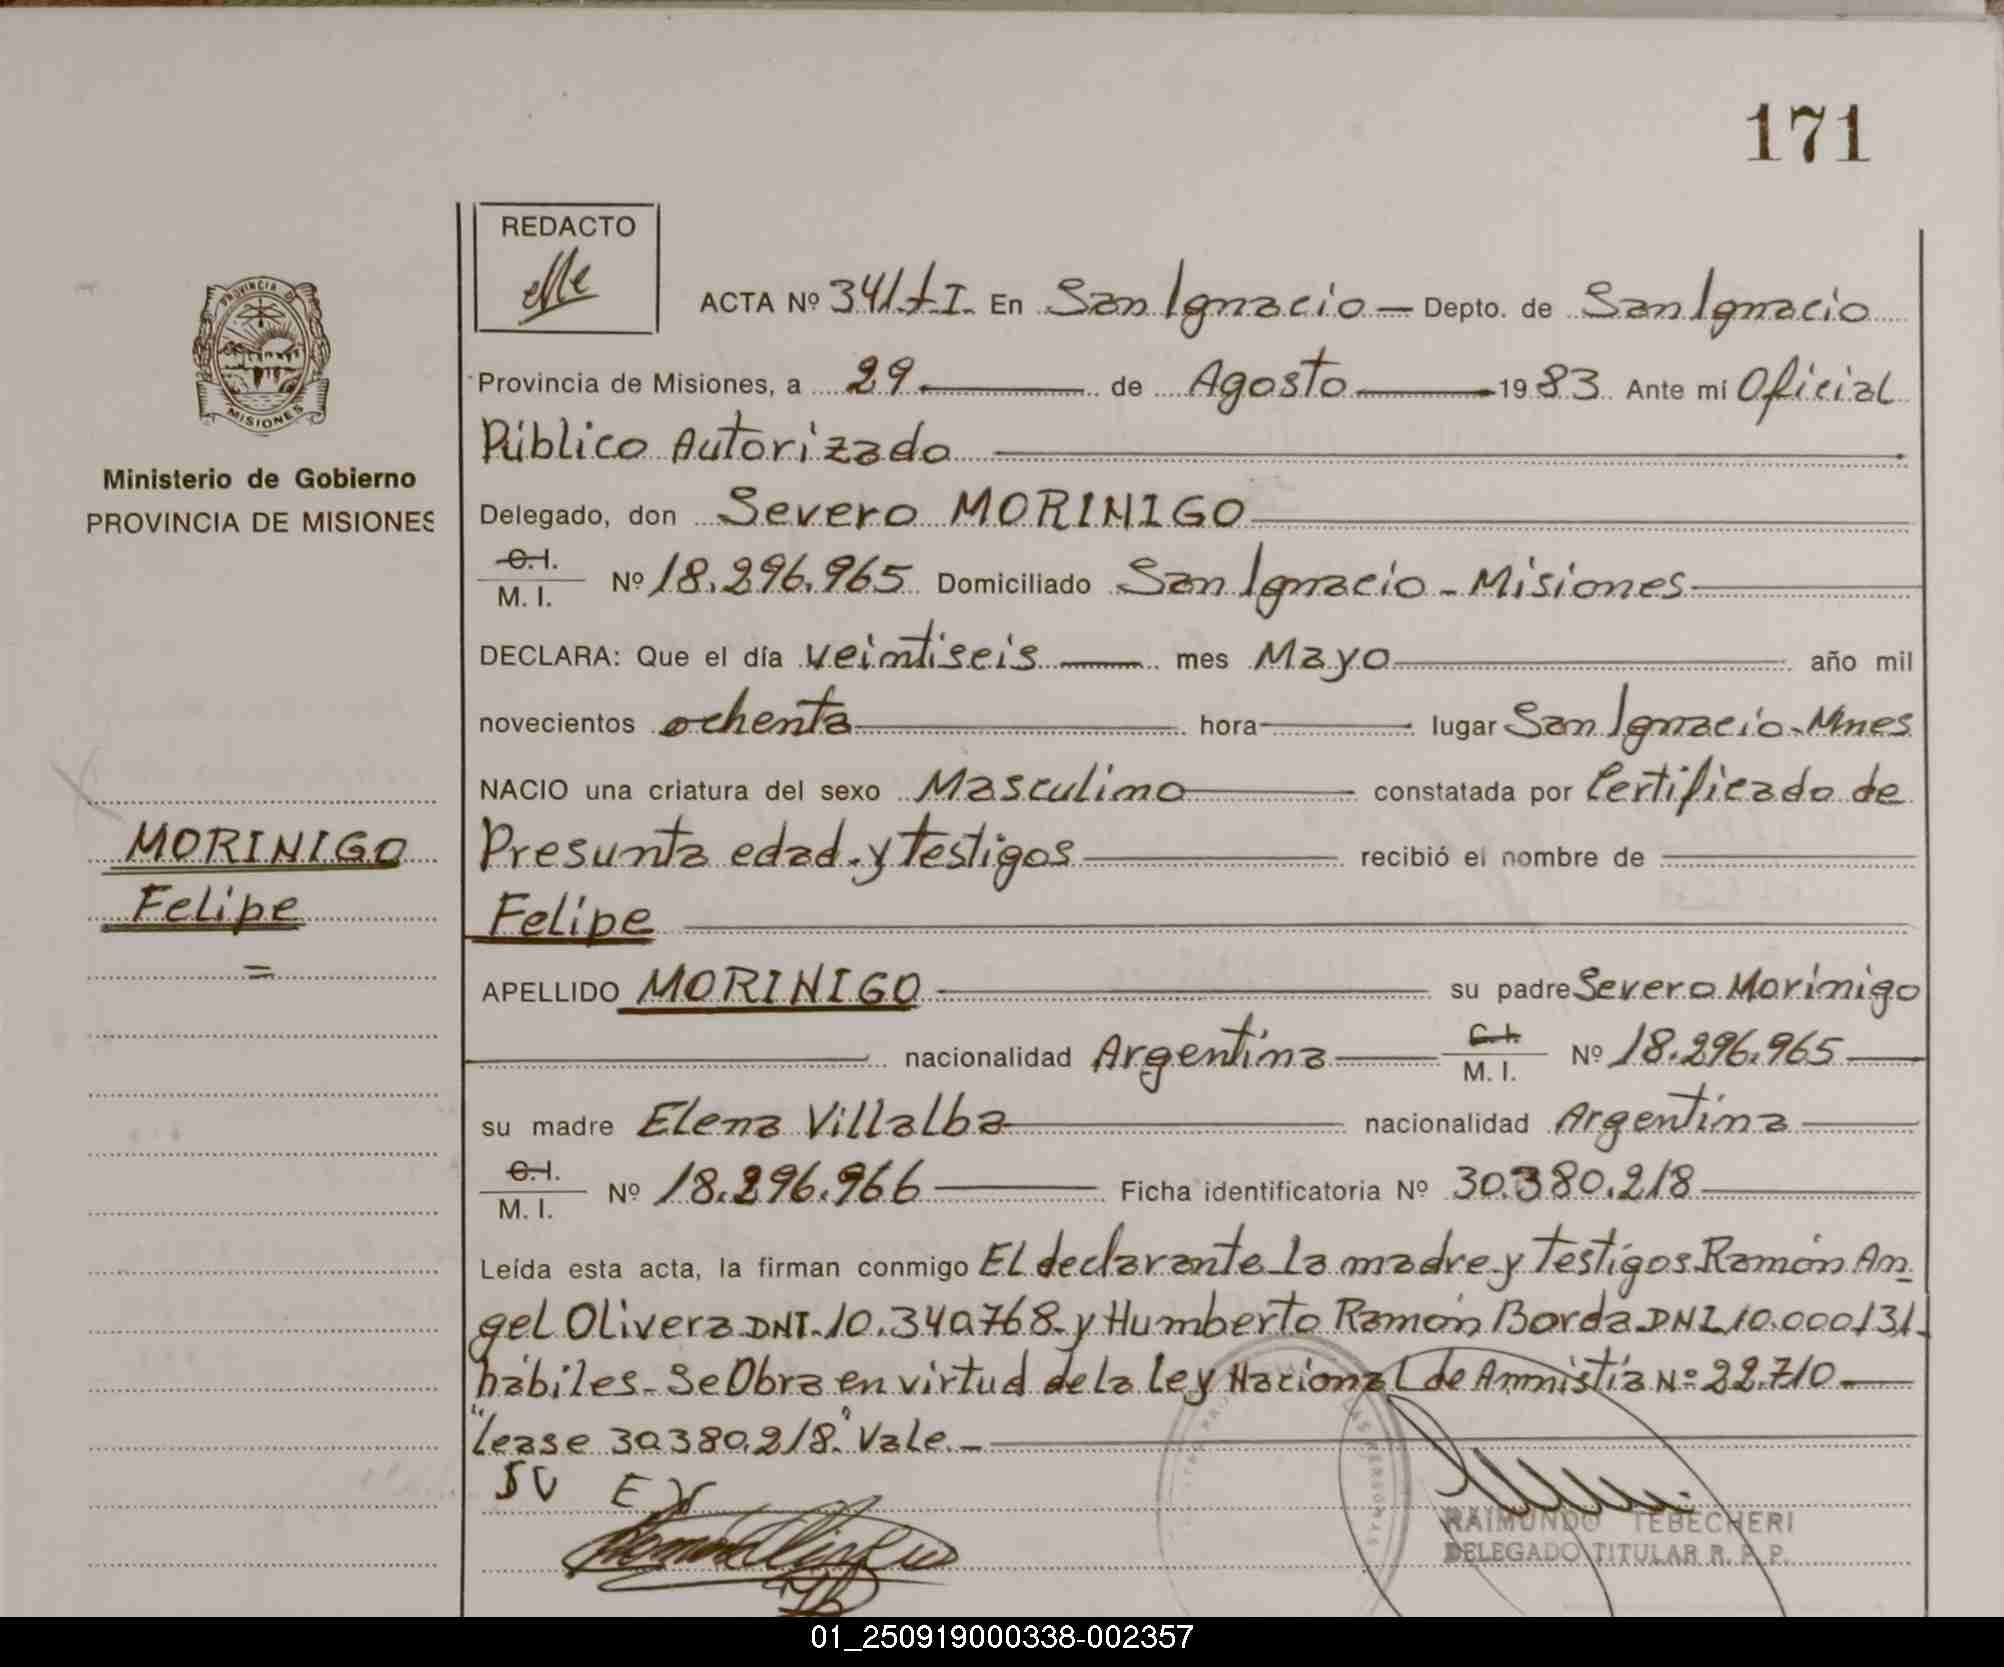 171
REDACTO
ACTA Nº 341.T I. En San Ignacio — Depto. de San Ignacio
PROVINCIA DE
MISIONES
Provincia de Misiones, a 29 de Agosto 1983. Ante mí Oficial
Público Autorizado
Ministerio de Gobierno
PROVINCIA DE MISIONES
Delegado, don Severo MORINIGO
C.I.
M. I. Nº 18.296.965 Domiciliado San Ignacio - Misiones
DECLARA: Que el día veintiseis mes Mayo año mil
novecientos ochenta hora lugar San Ignacio-Mnes
NACIO una criatura del sexo Masculino constatada por Certificado de
Presunta edad y testigos recibió el nombre de
MORINIGO
Felipe
=
Felipe
APELLIDO MORINIGO su padre Severo Morinigo
nacionalidad Argentina C.I. M. I. Nº 18.296.965
su madre Elena Villalba nacionalidad Argentina
C.I.
M. I. Nº 18.296.966 Ficha identificatoria Nº 30.380.218
Leída esta acta, la firman conmigo El declarante la madre y testigos Ramón An_
gel Olivera DNI. 10.340.768. y Humberto Ramón Borda DNI 10.000131.
hábiles. Se Obra en virtud de la Ley Nacional de Amnistía Nº 22.710.
"Lease 30.380.218." Vale. _
SV EV
RAIMUNDO TEBECHERI
DELEGADO TITULAR R. P. P.
01_250919000338-002357